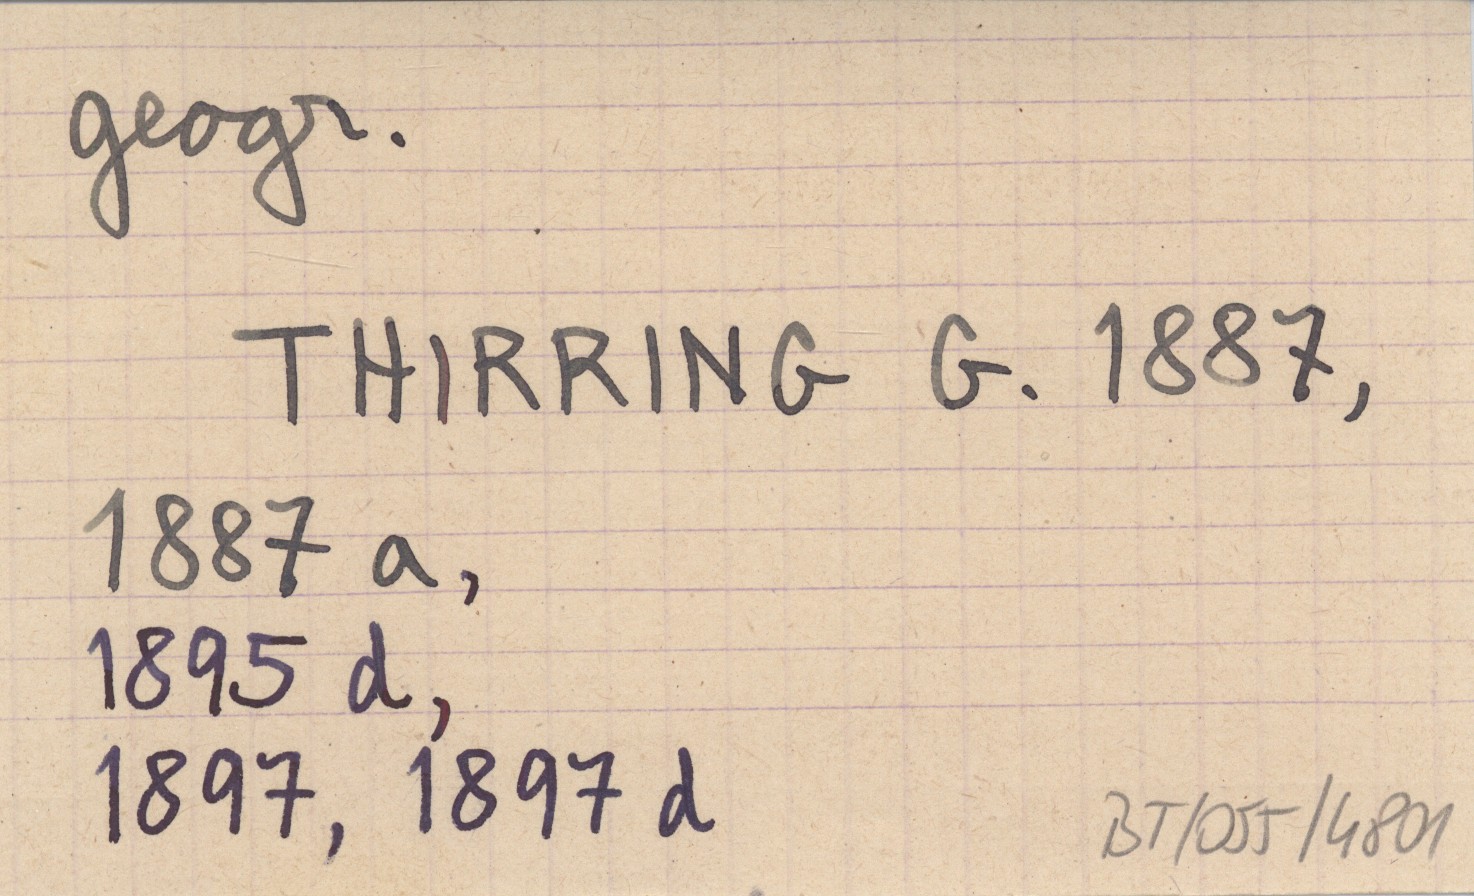 geogr.
THIRRING G. 1887,
1887 a,
1895 d,
1897, 1897 d
BT/055/4801